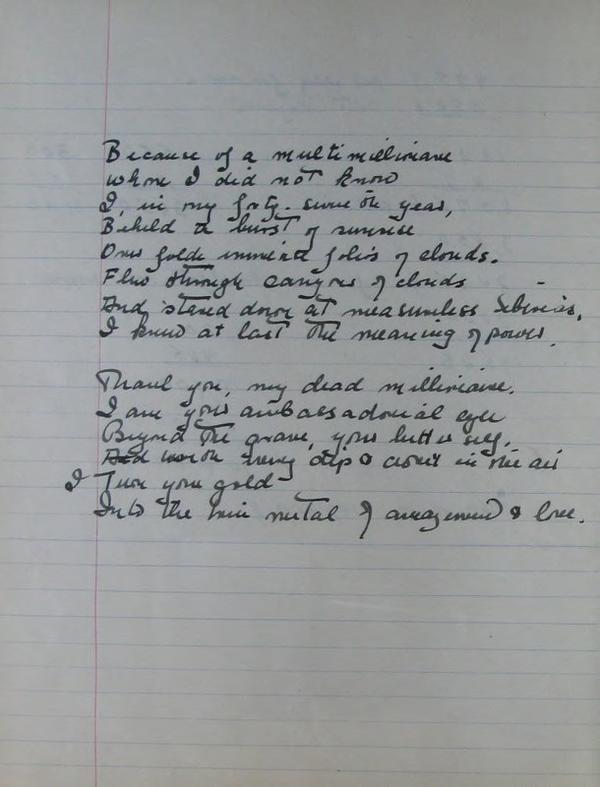 Because of a multimillionaire
whom I did not know
I, in my forty-seventh year,
Beheld the burst of sunrise
Over folios of clouds.
Flew through canyons of clouds
And stared down at measureless Siberias,
I knew at last the meaning of power.
Thank you, my dead millionaire.
I am your ambassadorial eye
Beyond the grave, your better self,
And with every dip & in the air
I Turn your gold
Into the metal of amazement & love.